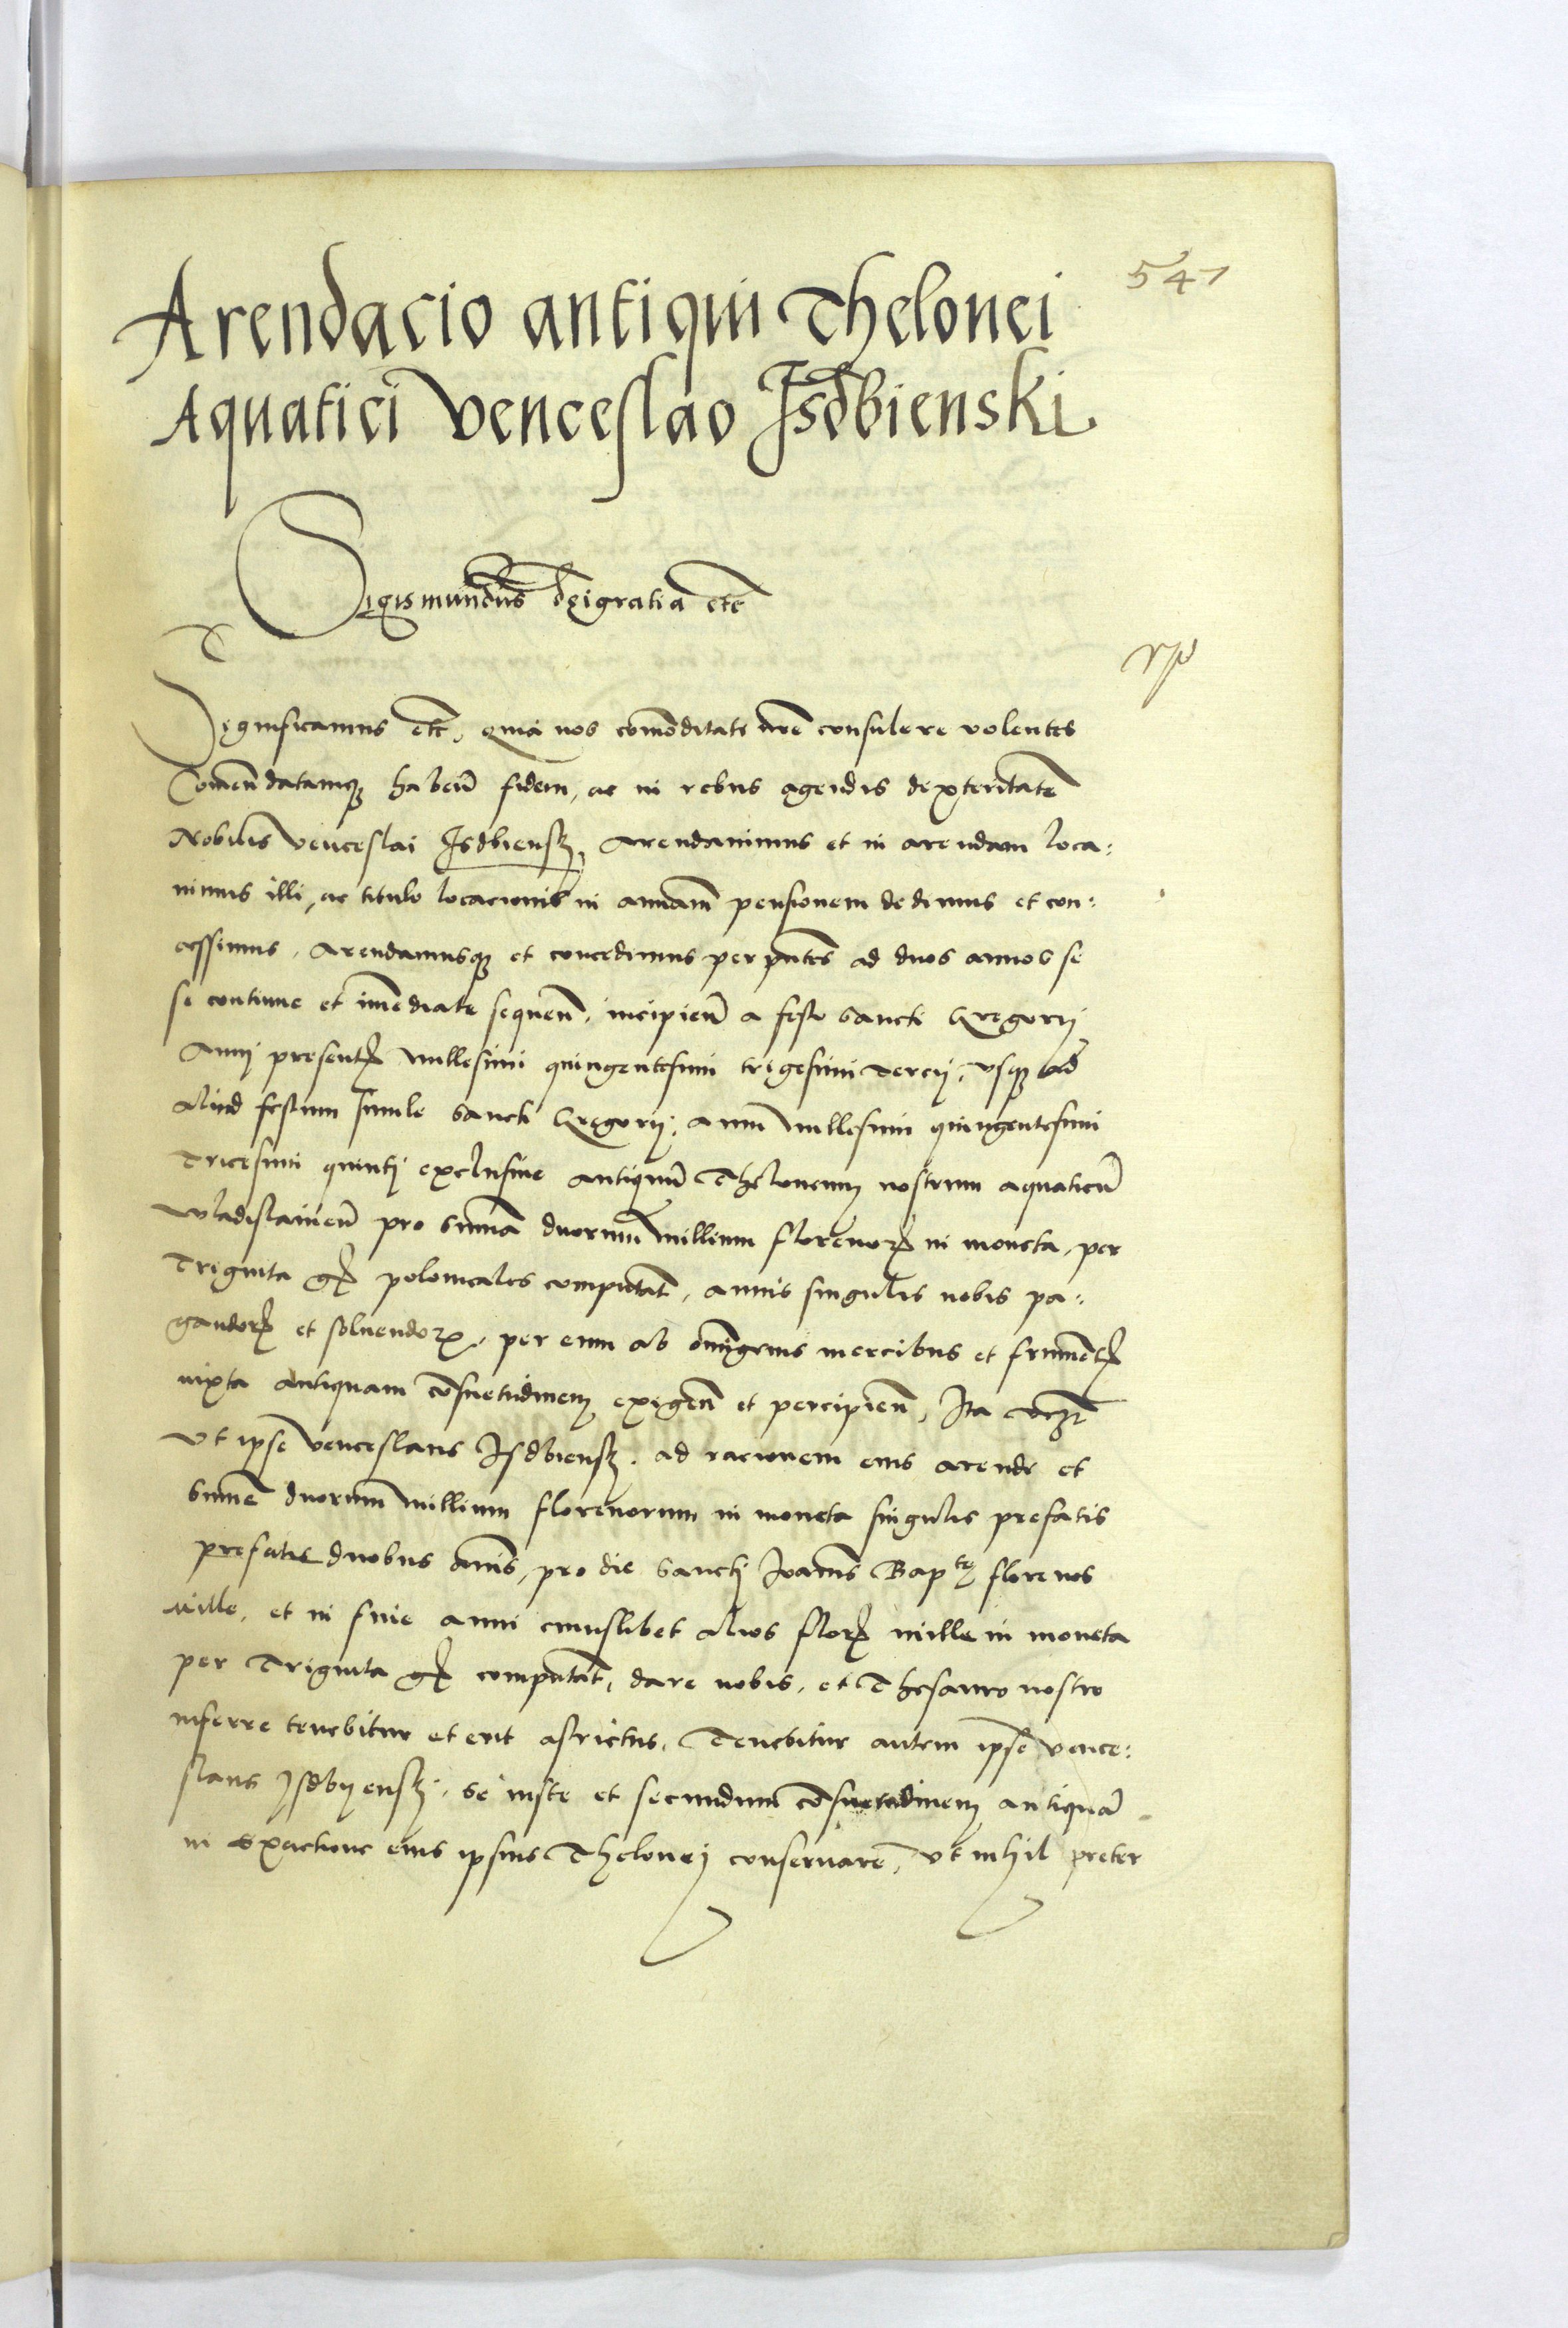 547
Arendacio antiqui Thelonei
Aquatici Venceslao Isdbienski
Sigismundus deigratia etc̄
Significamus etc̄, quia nos com̄oditati nrē consulere volentes
Com̄endatamq; haben̄ fidem, ac in rebus agendis dexteritatē
Nobilis Venceslai Isdbiensky, Arendauimus et in arendam loca:
uimus illi, ac titulo locacionis in annuam̄ pensionem dedimus et con:
cessimus, Arendamusq; et concedimus per pn̄tes ad duos annos se
se continue et im̄ediate sequen̄, incipien̄ a festo Sancti Gregorij
Anni presentꝭ Millesimi quingentesimi trigesimi Tercij, vsq; ad
Aliud festum simile Sancti Gregorij, Anni Millesimi quingentesimi
Tricesimi quinti exclusiue antiquum̄ Theloneum nostrum aquaticum̄
Wladislauien̄ pro summa duorum Millium florenorꝝ in moneta, per
Triginta gꝝ polonicales computat̄, annis singulis nobis pa:
gandorꝝ et soluendorꝝ, per eum ab om̄igenis mercibus et frumentꝭ
iuxta antiquam cōsuetudinem exigen̄ et percipien̄, Ita
Vt ipse Venceslaus Isdbiensky, ad racionem eius arende et
Summe duorum Millium florenorum in moneta singulis prefatis
prefatis duobus annis, pro die Sancti Ioannis Baptē florenos
Mille, et in fine anni cuiuslibet alios florꝝ mille in moneta
per Triginta gꝝ computat̄, dare nobis, et Thesauro nostro
inferre tenebitur et erit astrictus, Tenebitur autem ipse Vence:
slaus Isdbyensky, se iuste et secundum cōsuetudinem antiquā
in exactione eius ipsius Thelonej conseruare, vt nihil preter